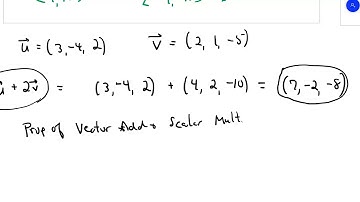 u⃗ = (3, -4, 2) v⃗ = (2, 1, -5)
u⃗ + 2v⃗ = (3, -4, 2) + (4, 2, -10) = (7, -2, -8)
Prop of Vector Add + Scalar Mult.